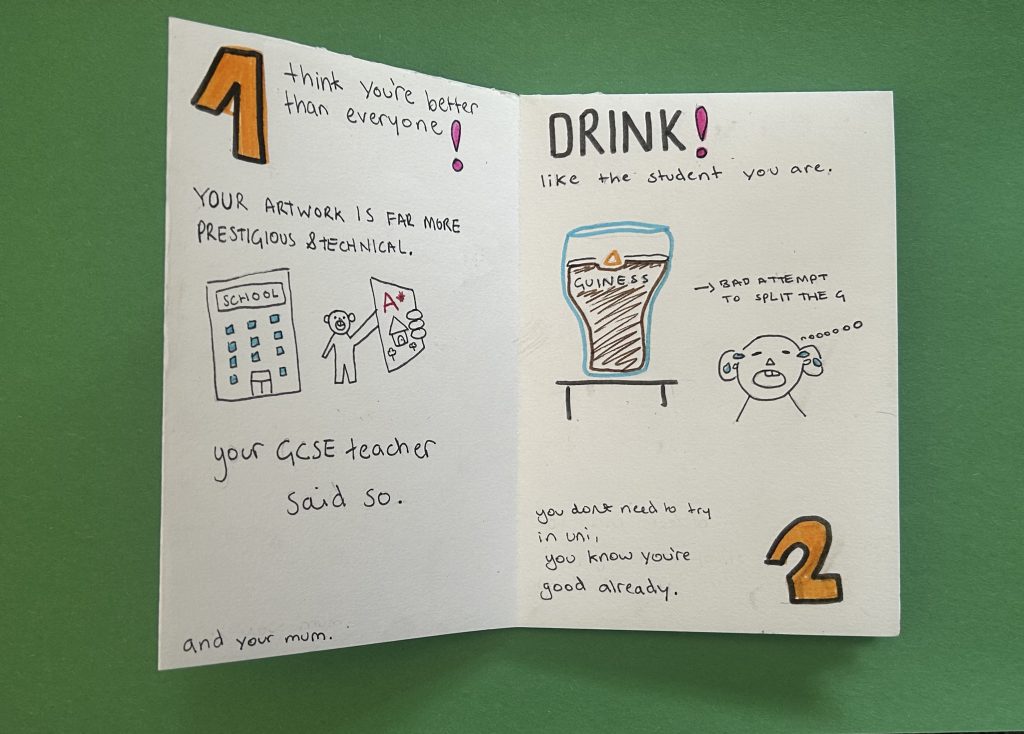 1 think you're better
than everyone!
YOUR ARTWORK IS FAR MORE
PRESTIGIOUS & TECHNICAL.
SCHOOL
A*
your GCSE teacher
said so.
and your mum.
DRINK!
like the student you are.
GUINESS
→ BAD ATTEMPT
TO SPLIT THE G
you dont need to try
in uni,
you know you're
good already.
2